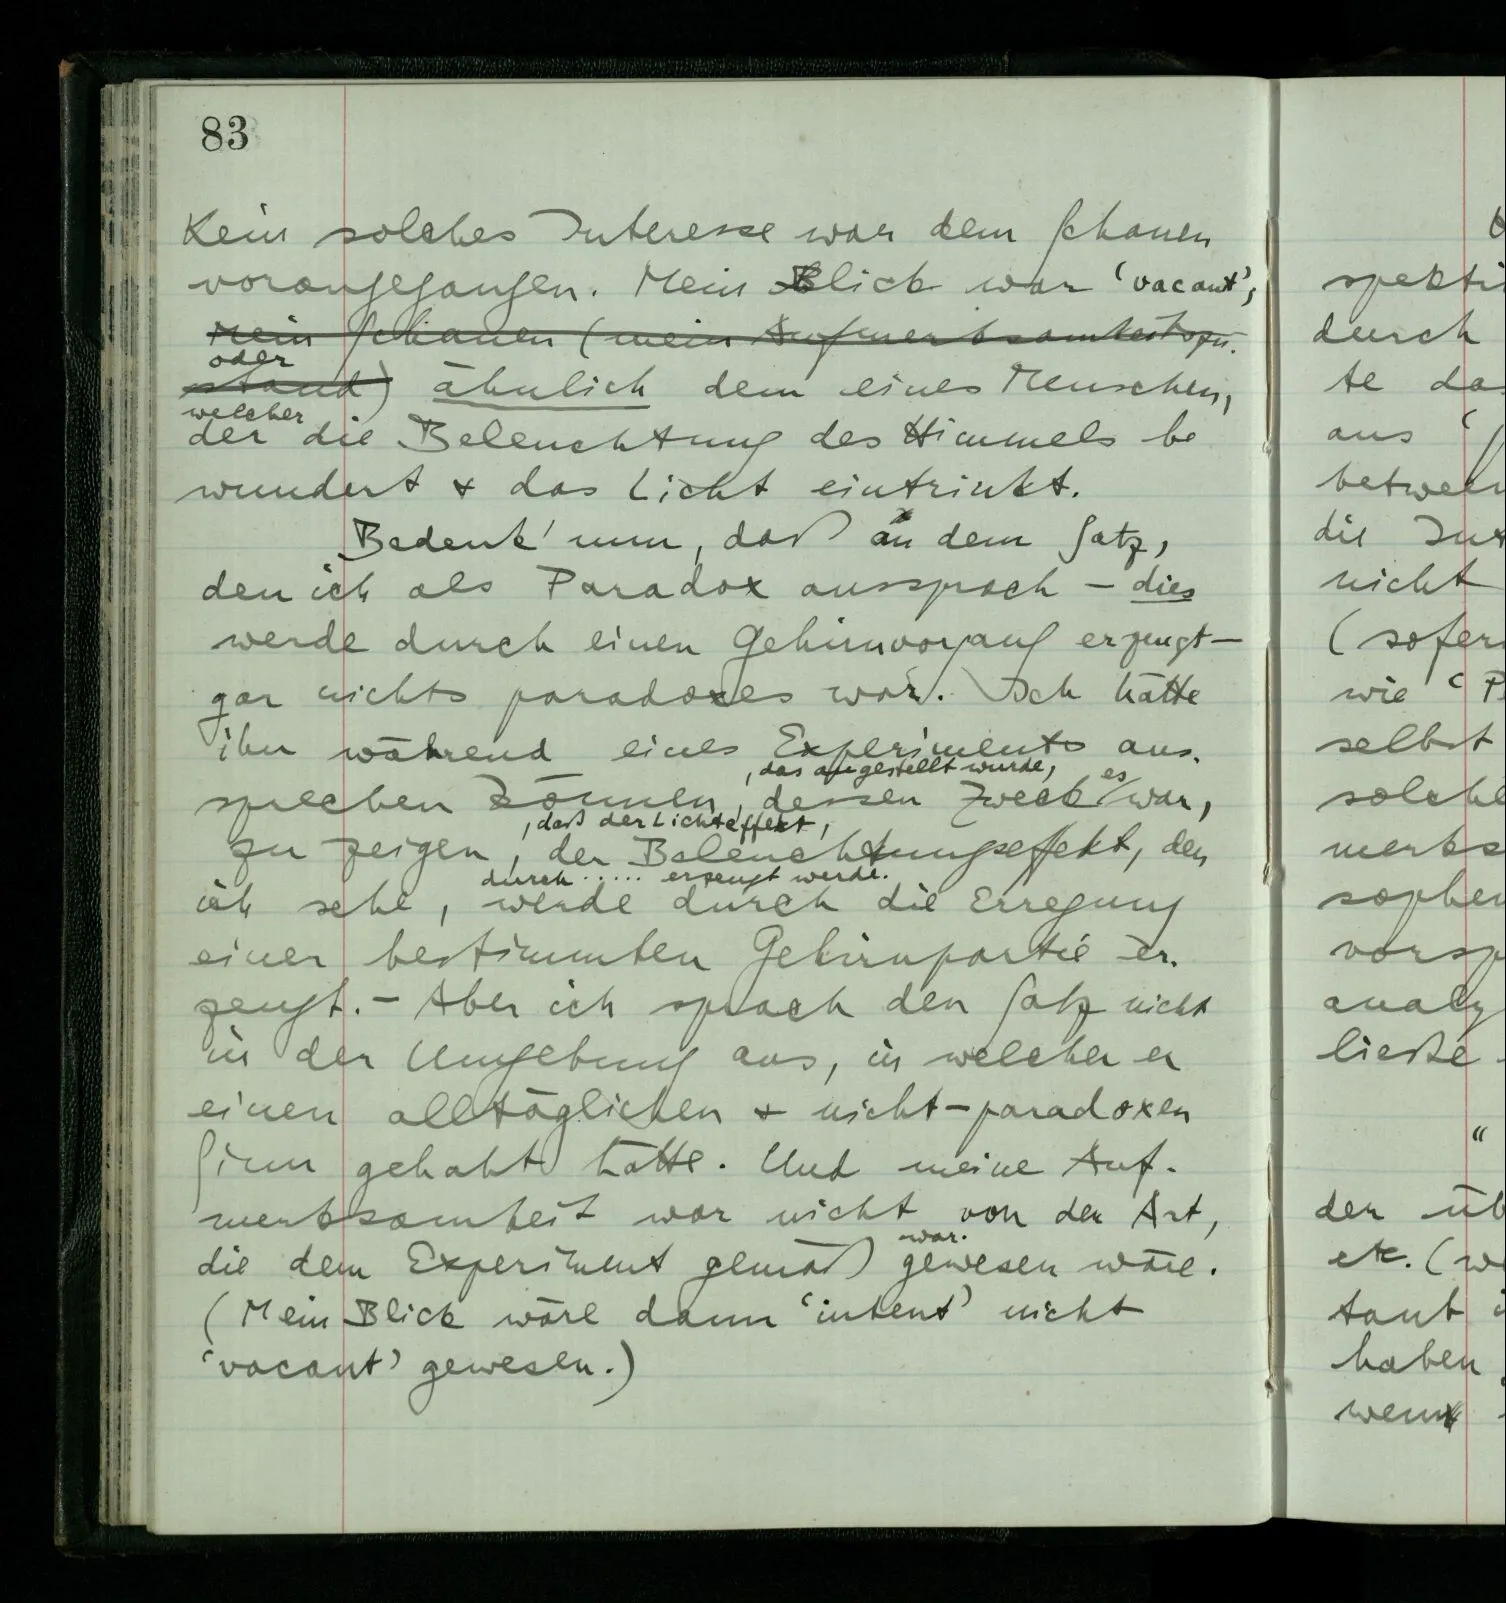 83
Kein solches Interesse war dem Schauen
vorangegangen. Mein Blick war ‘vacant’;
Mein Schauen (mein Aufmerksamkeitszu-
oder
stand) ähnlich dem eines Menschen,
welcher
der die Beleuchtung des Himmels be
wundert & das Licht eintrinkt.
Bedenk' nun, daß an dem Satz,
den ich als Paradox aussprach – dies
werde durch einen Gehirnvorgang erzeugt –
gar nichts paradoxes war. Ich hätte
ihn während eines Experiments aus-
, das angestellt wurde, es
sprechen können, dessen Zweck war,
, daß der Lichteffekt,
zu zeigen, der Beleuchtungseffekt, den
durch ..... erzeugt werde.
ich sehe, werde durch die Erregung
einer bestimmten Gehirnpartie er-
zeugt. – Aber ich sprach den Satz nicht
in der Umgebung aus, in welcher er
einen alltäglichen & nicht-paradoxen
Sinn gehabt hätte. Und meine Auf-
merksamkeit war nicht von der Art,
war.
die dem Experiment gemäß gewesen wäre.
(Mein Blick wäre dann ‘intent’ nicht
‘vacant’ gewesen.)
durch
te
aus
die
nicht
(
wie ‘
selbst
“
der
etc. (
haben